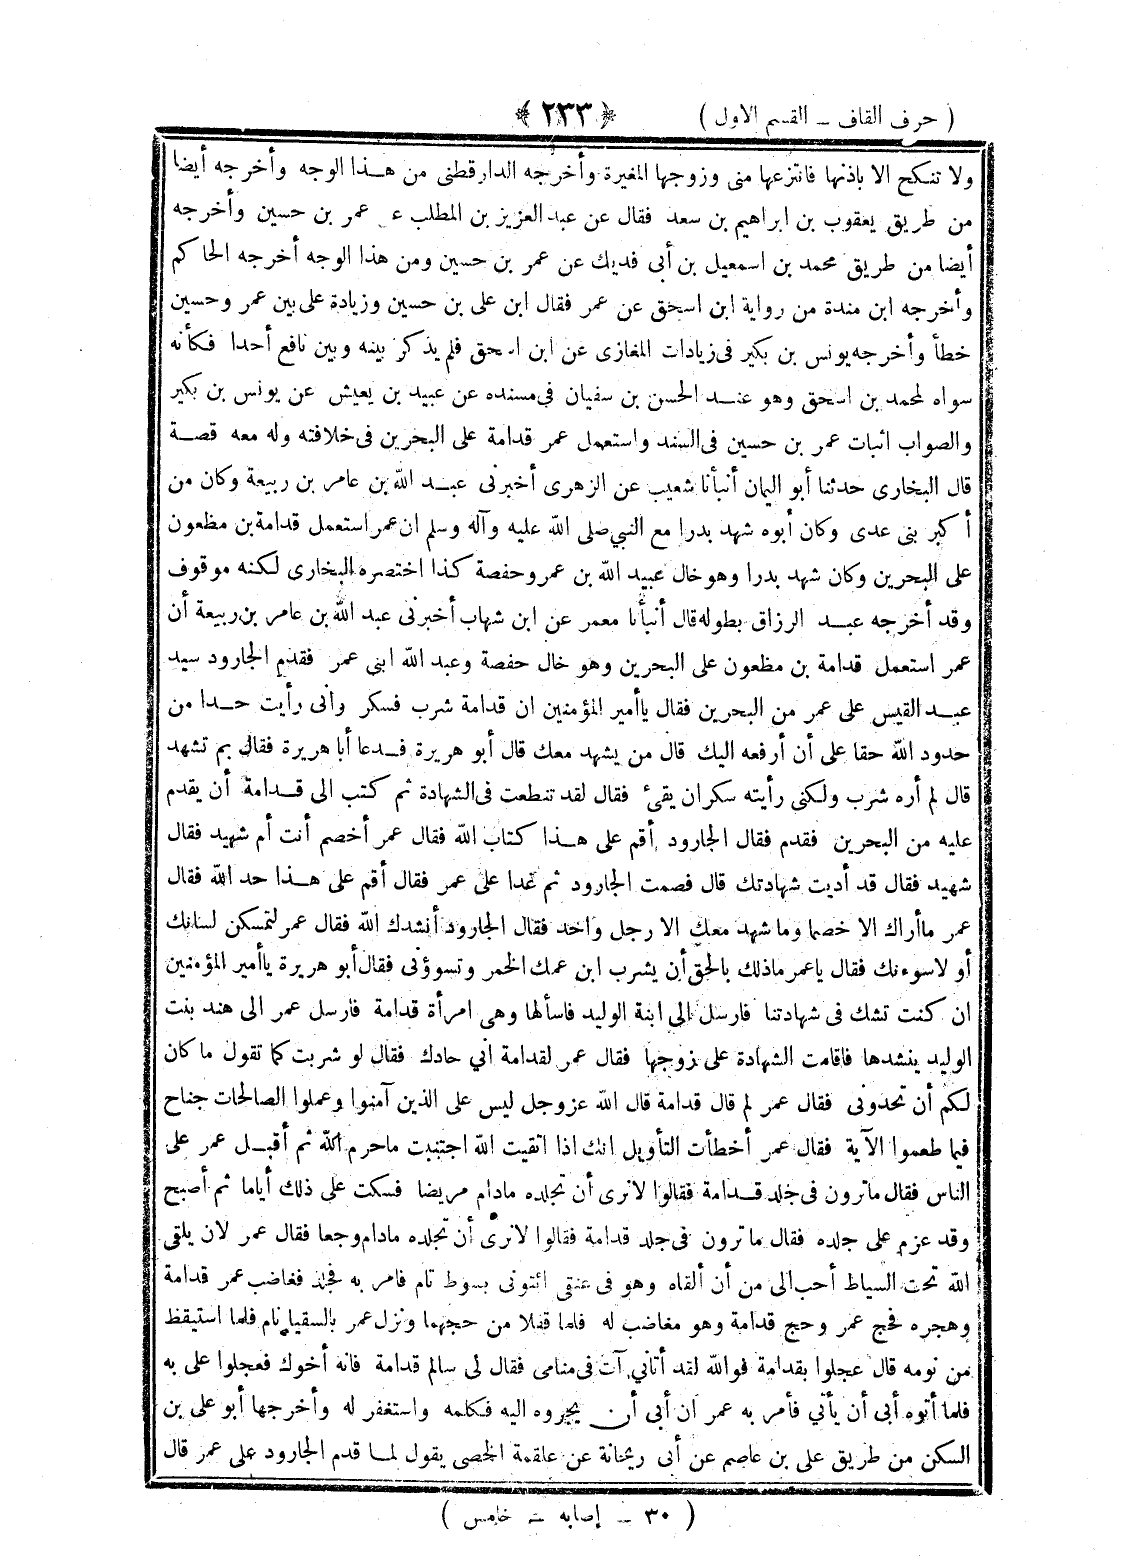 ( حرف القاف ــ القسم الاول ) ﴿ ٢٣٣ ﴾
ولا تنكح الا باذنها فانتزعها منى وزوجها المغيرة وأخرجه الدارقطنى من هــذا الوجه وأخرجه أيضا
من طريق يعقوب بن ابراهيم بن سعد فقال عن عبد العزيز بن المطلب عن عمر بن حسين وأخرجه
أيضا من طريق محمد بن اسمعيل بن أبى فديك عن عمر بن حسين ومن هذا الوجه أخرجه الحاكم
وأخرجه ابن مندة من رواية ابن اسحق عن عمر فقال ابن على بن حسين وزيادة على بين عمر وحسين
خطأ وأخرجه يونس بن بكير فى زيادات المغازى عن ابن اسحق فلم يذكر بينه وبين نافع أحدا فكأنه
سواه لمحمد بن اسحق وهو عنــد الحسن بن سفيان فى مسنده عن عبيد بن يعيش عن يونس بن بكير
والصواب اثبات عمر بن حسين فى السند واستعمل عمر قدامة على البحرين فى خلافته وله معه قصــة
قال البخارى حدثنا أبو اليمان أنبأنا شعيب عن الزهرى أخبرنى عبــد الله بن عامر بن ربيعة وكان من
أكبر بنى عدى وكان أبوه شهد بدرا مع النبي صلى الله عليه وآله وسلم ان عمر استعمل قدامة بن مظعون
على البحرين وكان شهد بدرا وهو خال عبيد الله بن عمر وحفصة كذا اختصره البخارى لكنه موقوف
وقد أخرجه عبــد الرزاق بطوله قال أنبأنا معمر عن ابن شهاب أخبرنى عبد الله بن عامر بن ربيعة أن
عمر استعمل قدامة بن مظعون على البحرين وهو خال حفصة وعبد الله ابنى عمر فقدم الجارود سيد
عبــد القيس على عمر من البحرين فقال ياأمير المؤمنين ان قدامة شرب فسكر وانى رأيت حــدا من
حدود الله حقا على أن أرفعه اليك قال من يشهد معك قال أبو هريرة فــدعا أبا هريرة فقال بم تشهد
قال لم أره شرب ولكنى رأيته سكران يقئ فقال لقد تنطعت فى الشهادة ثم كتب الى قــدامة أن يقدم
عليه من البحرين فقدم فقال الجارود أقم على هــذا كتاب الله فقال عمر أخصم أنت أم شهيد فقال
شهيد فقال قد أديت شهادتك قال فصمت الجارود ثم غدا على عمر فقال أقم على هــذا حد الله فقال
عمر ماأراك الا خصما وما شهد معك الا رجل واحد فقال الجارود أنشدك الله فقال عمر لتمسكن لسانك
أو لاسوءنك فقال ياعمر ماذلك بالحق أن يشرب ابن عمك الخمر وتسوؤنى فقال أبو هريرة ياأمير المؤمنين
ان كنت تشك فى شهادتنا فارسل الى ابنة الوليد فاسألها وهى امرأة قدامة فارسل عمر الى هند بنت
الوليد ينشدها فاقامت الشهادة على زوجها فقال عمر لقدامة اني حادك فقال لو شربت كما تقول ما كان
لكم أن تحدونى فقال عمر لم قال قدامة قال الله عزوجل ليس على الذين آمنوا وعملوا الصالحات جناح
فيما طعموا الآية فقال عمر أخطأت التأويل انك اذا اتقيت الله اجتنبت ماحرم الله ثم أقبــل عمر على
الناس فقال ماترون فى جلد قــدامة فقالوا لانرى أن تجلده مادام مريضا فسكت على ذلك أياما ثم أصبح
وقد عزم على جلده فقال ماترون فى جلد قدامة فقالوا لانرى أن تجلده مادام وجعا فقال عمر لان يلقى
الله تحت السياط أحب الى من أن ألقاه وهو فى عنقى ائتونى بسوط تام فامر به فجلد فغاضب عمر قدامة
وهجره فحج عمر وحج قدامة وهو مغاضب له فلما قفلا من حجهما ونزل عمر بالسقيا نام فلما استيقظ
من نومه قال عجلوا بقدامة فوالله لقد أتاني آت فى منامى فقال لى سالم قدامة فانه أخوك فعجلوا على به
فلما أتوه أبى أن يأتي فأمر به عمر ان أبى أن يجروه اليه فكلمه واستغفر له وأخرجها أبو على بن
السكن من طريق على بن عاصم عن أبى ريحانة عن علقمة الخصى يقول لمــا قدم الجارود على عمر قال
( ٣٠ ــ إصابه ــ خامس )